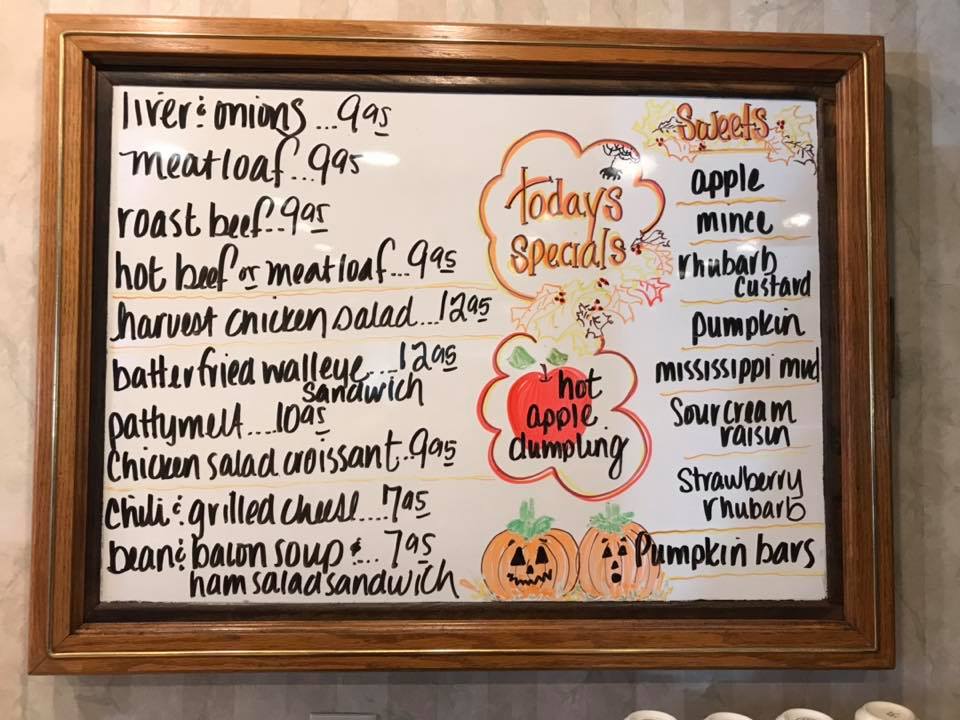 liver & onions...9.95
meatloaf...9.95
roast beef..9.95
hot beef or meatloaf...9.95
harvest chicken salad...12.95
batterfried walleye....12.95
sandwich
pattymelt....10.95
Chicken salad croissant..9.95
chili & grilled cheese....7.95
bean & bacon soup &...7.95
ham salad sandwich
todays
specials
hot
apple
dumpling
Sweets
apple
mince
rhubarb
custard
pumpkin
mississippi mud
Sour cream
raisin
Strawberry
rhubarb
Pumpkin bars